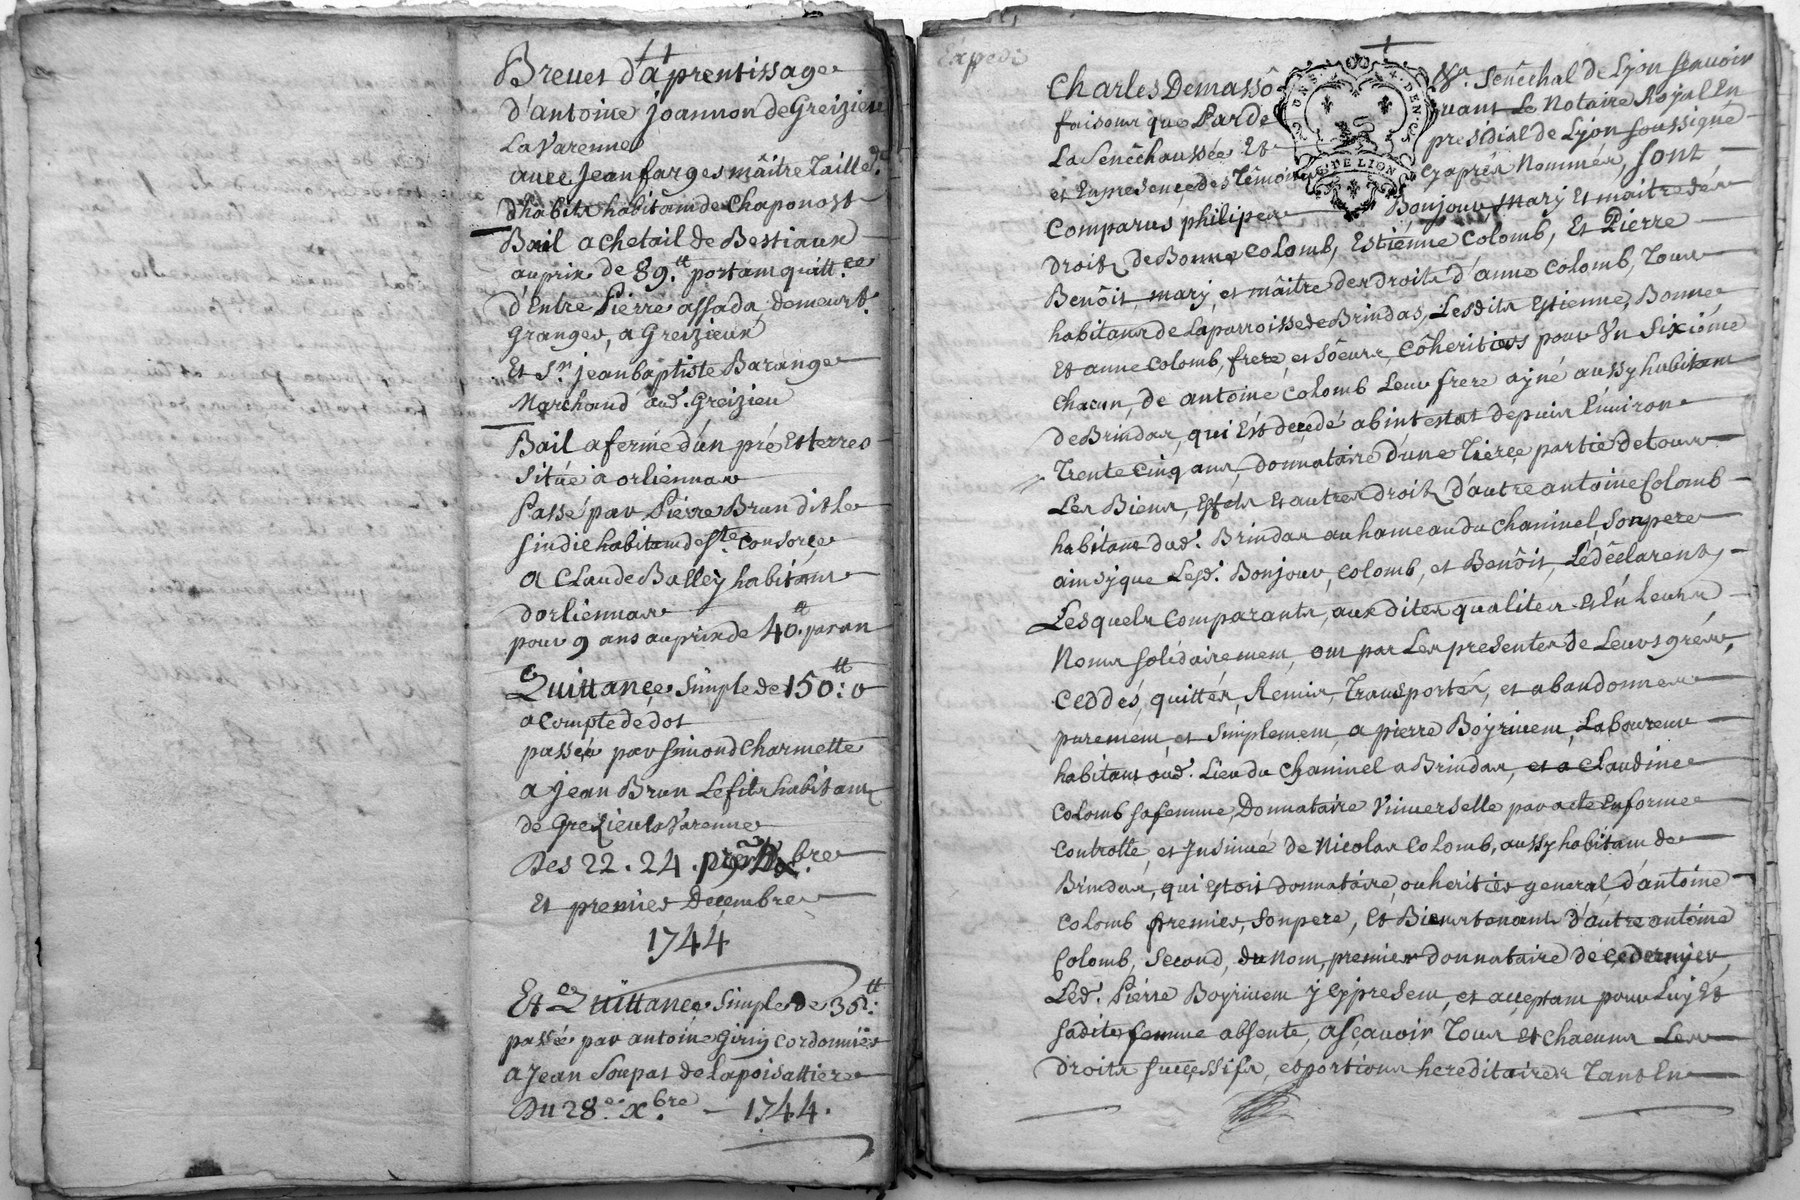 Brevet d'aprentissage
d'antoine joannon de Greizieu
La Varenne
avec Jean farges mâitre Tailleur
d'habits habitant de Chaponost
Bail a chetail de Bestiaux
au prix de 89.tt portant quitt.ce
d'Entre Pierre assada, demeur.t
Granger, a Greizieux
Et S.r jean baptiste Barange
Marchand aud. Greizieu
Bail a ferme d'un pré et terres
Situé a orliennas
Passé par Pierre Brun dit le
sindic habitant de S.te Consorce
a Claude Balley habitant
d'orliennas
pour 9 ans au prix de 40.tt par an
Quittance Simple de 150.tt
a compte de dot
passée par Simond Charmette
a Jean Brun Le fils habitant
de Grezieu la Varenne
Des 22. 24. 9bre
Et premier Decembre
1744
Et Quittance Simple de 36.tt
passée par antoine Giriy Cordonnier
a Jean Soupat de la poisattiere
Du 28.e Xbre – 1744.
Expedié
Charles Demasso Sénêchal de Lyon sçavoir
faisons que Pardevant Le Notaire Royal En
La Senêchaussée Et presidial de Lyon soussigné
et En presence des Têmoins cy aprés Nommés, sont
Comparus philipe Bonjour mary Et maitre dés
Droits de Bonne Colomb, Estienne Colomb, Et Pierre
Benôit, mary, et mâitre des droits d'anne Colomb, Tous
habitans de La parroisse de Brindas, Lesdits Estienne, Bonne
Et anne Colomb, frere, et Sôeurs, côheritiers pour Un Sixième
Chacun, de antoine Colomb Leur frere ayné aussy habitant
de Brindas, qui Est decedé abintestat depuis Environ
Trente Cinq ans, donnataire d'une Tierce partie de tous
Les Biens, Effets Et autres droits d'autre antoine Colomb
habitant dud. Brindas au hameau du Chaninel, Son pere
ainsy que Lesd. Bonjour, Colomb, et Benôit, Le dêclarent,
Lesquels Comparants, aux dites qualites Et En Leurs
Noms solidairement, ont par Les presentes de Leurs grés,
Ceddés, quittés, Remis, Transportés, et abandonnés
purement, et Simplement, a pierre Boyrivent, Laboureur
habitant aud. Lieu du Chaninel a Brindas, et a Claudine
Colomb sa femme, Donnataire Universelle par acte En forme
Controllé, et Insinué de Nicolas Colomb, aussy habitant de
Brindas, qui Estoit donnataire, ou heritier general, d'antoine
Colomb premier, Son pere, Et Bienstenant d'autre antoine
Colomb, Second, du Nom, premier donnataire de ce dernier,
Led. Pierre Boyrivent y cy present, et acceptant pour Luy Et
sadite femme absente, ascavoir Tous Et chacuns Les
droits Successifs, et portions hereditaires Tant En